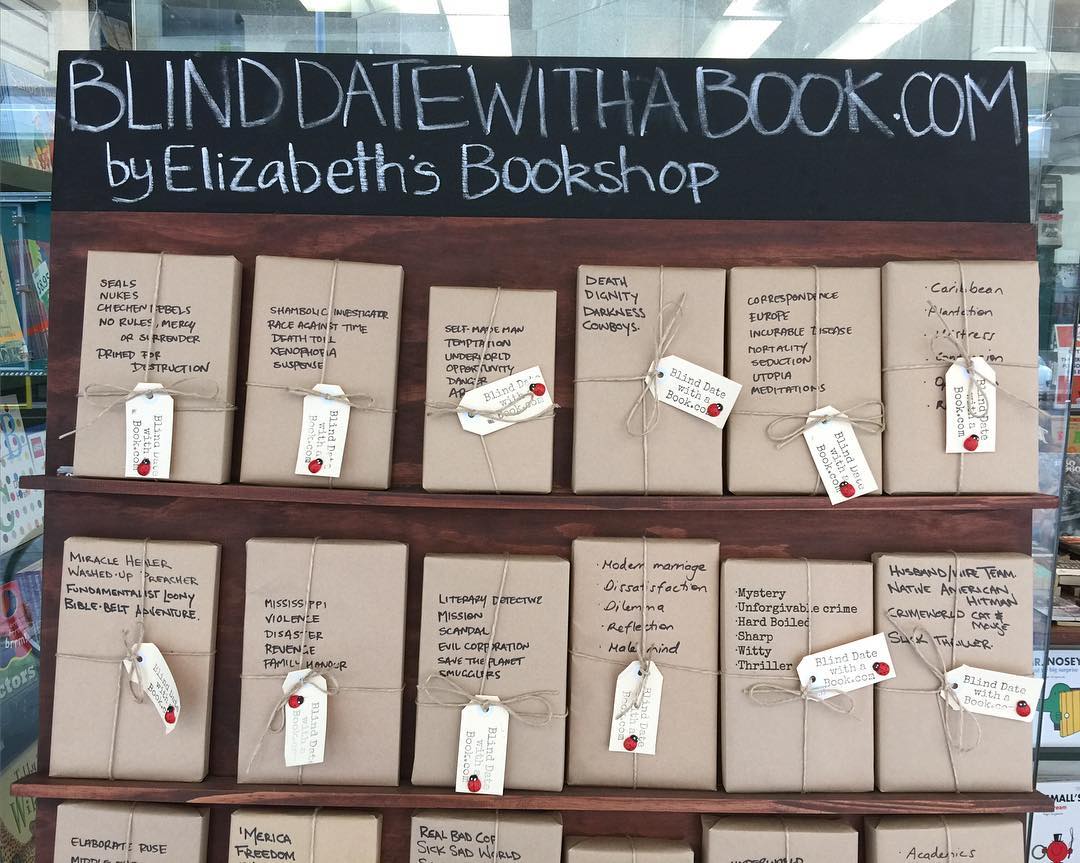 BLIND DATE WITH A BOOK.COM
by Elizabeth's Bookshop
SEALS
NUKES
CHECHEN REBELS
NO RULES, MERCY
OR SURRENDER
PRIMED FOR
DESTRUCTION
Blind Date
with a
Book.com
SHAMBOLIC INVESTIGATOR
RACE AGAINST TIME
DEATH TOLL
XENOPHOBIA
SUSPENSE
Blind Date
with a
Book.com
SELF-MADE MAN
TEMPTATION
UNDERWORLD
OPPORTUNITY
DANGER
Blind Date
with a
Book.com
DEATH
DIGNITY
DARKNESS
COWBOYS.
Blind Date
with a
Book.com
CORRESPONDENCE
EUROPE
INCURABLE DISEASE
MORTALITY
SEDUCTION
UTOPIA
MEDITATIONS
Blind Date
with a
Book.com
· Caribbean
· Plantation
· Mistress
Blind Date
with a
Book.com
MIRACLE HEALER
WASHED-UP PREACHER
FUNDAMENTALIST LOONY
BIBLE-BELT ADVENTURE.
Blind Date
with a
Book.com
MISSISSIPPI
VIOLENCE
DISASTER
REVENGE
FAMILY HONOUR
Blind Date
with a
Book.com
LITERARY DETECTIVE
MISSION
SCANDAL
EVIL CORPORATION
SAVE THE PLANET
SMUGGLERS
Blind Date
with a
Book.com
· Modern marriage
· Dissatisfaction
· Dilemma
· Reflection
· Male mind
Blind Date
with a
Book.com
·Mystery
·Unforgivable crime
·Hard Boiled
·Sharp
·Witty
·Thriller
Blind Date
with a
Book.com
HUSBAND/WIFE TEAM.
NATIVE AMERICAN
HITMAN
CRIMEWORLD CAT &
MOUSE
SLICK THRILLER.
Blind Date
with a
Book.com
NOSEY
SMALL'S
ELABORATE RUSE
'MERICA
FREEDOM
REAL BAD COP
SICK SAD WORLD
UNDERWORLD
· Academics